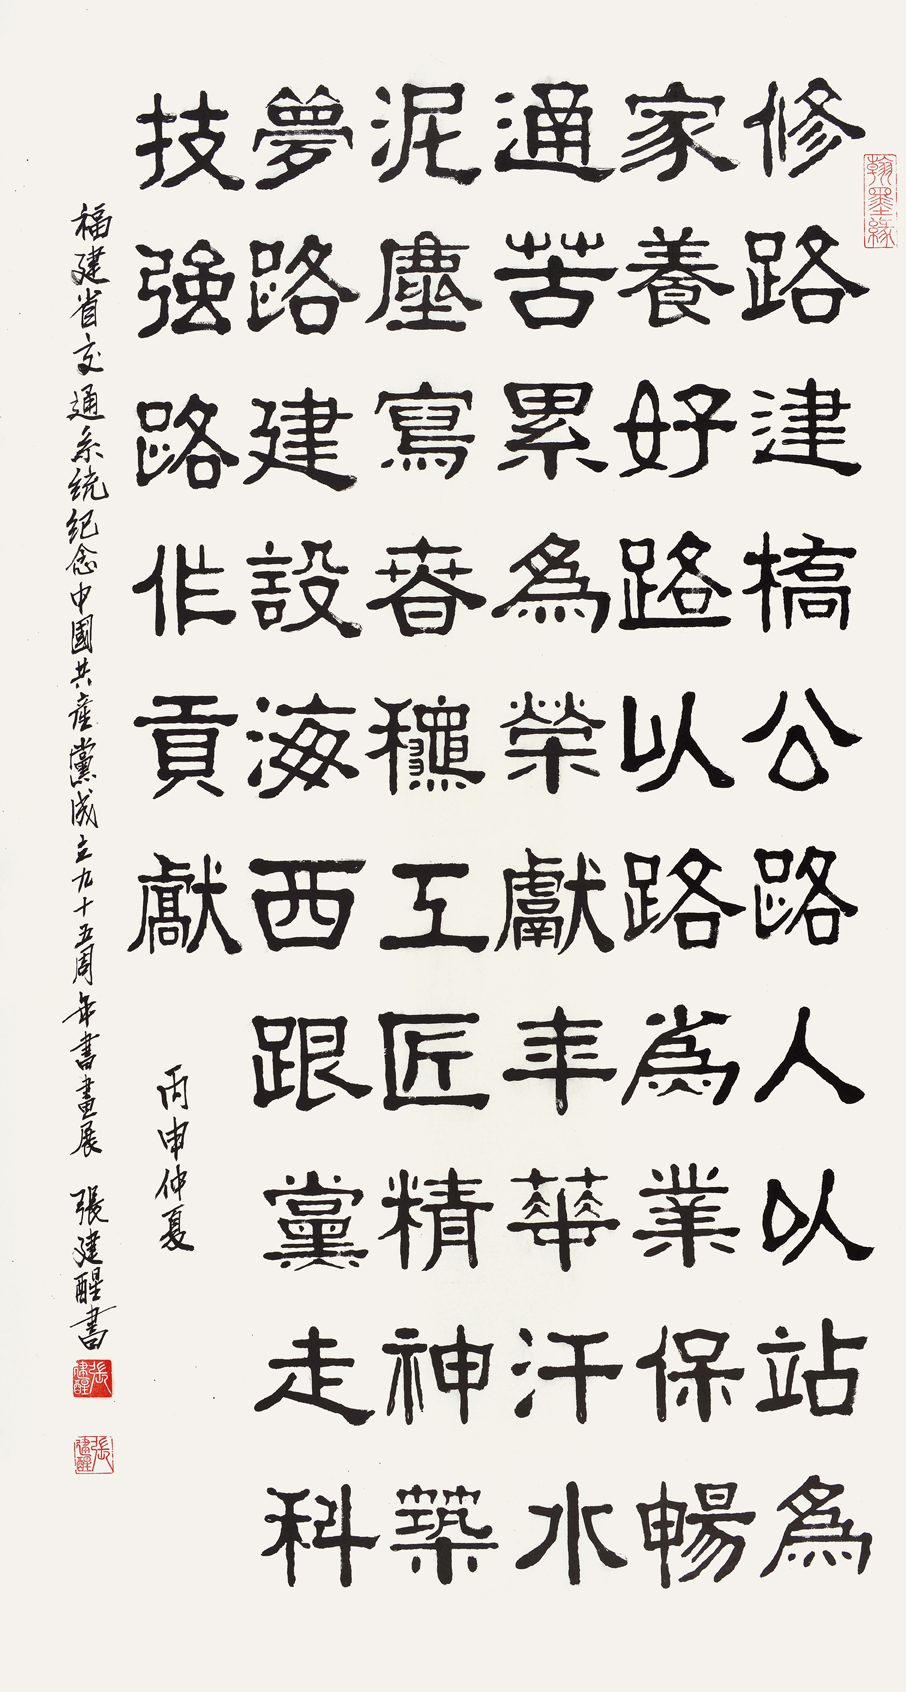 翰墨緣
修路建橋公路人以站為
家養好路以路為業保暢
通苦累為榮獻年華汗水
泥塵寫春穐工匠精神築
夢路建設海西跟黨走科
技強路作貢獻
丙申仲夏
福建省交通系統紀念中國共產黨成立九十五周年書畫展 張建醒書
張建醒
張建醒